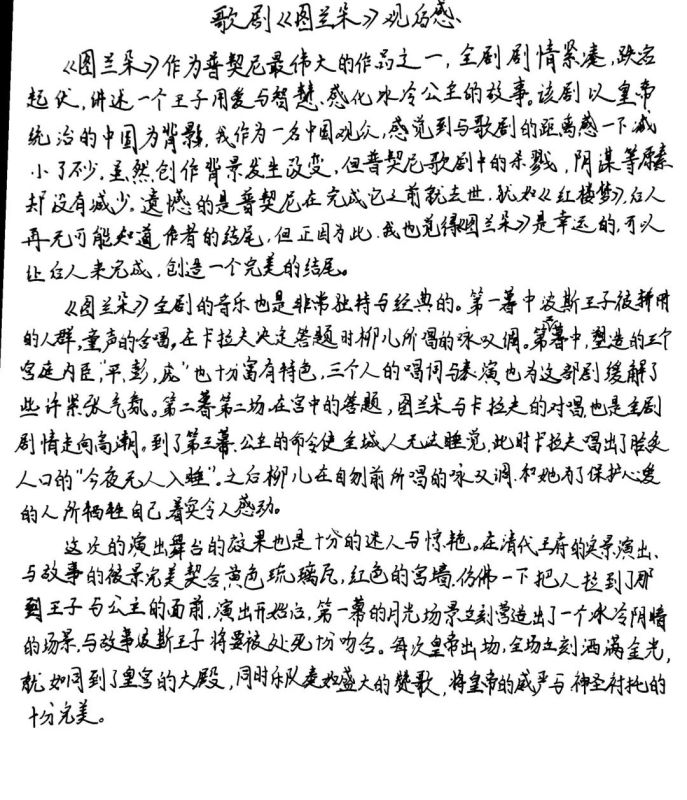 歌剧《图兰朵》观后感
《图兰朵》作为普契尼最伟大的作品之一，全剧剧情紧凑，跌宕
起伏，讲述一个王子用爱与智慧，感化冰冷公主的故事。该剧以皇帝
统治的中国为背影，我作为一名中国观众，感觉到与歌剧的距离感一下减
小了不少。虽然创作背景发生改变，但普契尼歌剧中的杀戮，阴谋等原素
却没有减少。遗憾的是普契尼在完成它之前就去世，犹如《红楼梦》，后人
再无可能知道作者的结尾，但正因为此，我也觉得《图兰朵》是幸运的，可以
让后人来完成，创造一个完美的结尾。
《图兰朵》全剧的音乐也是非常独特与经典的。第一幕中波斯王子被斩时
的人群，童声的合唱，在卡拉夫决定答题时柳儿所唱的咏叹调。第二幕中，塑造的三个
宫廷内臣，“平，彭，庞”也十分富有特色，三个人的唱词与表演也为这部剧缓解了
些许紧张气氛。第二幕第二场在宫中的答题，图兰朵与卡拉夫的对唱也是全剧
剧情走向高潮。到了第三幕，公主的命令使全城人无法睡觉，此时卡拉夫唱出了脍炙
人口的“今夜无人入睡”。之后柳儿在自刎前所唱的咏叹调，和她为了保护心爱
的人所牺牲自己着实令人感动。
这次的演出舞台的效果也是十分的迷人与惊艳。在清代王府的实景演出，
与故事的背景完美契合，黄色琉璃瓦，红色的宫墙，仿佛一下把人拉到了那
到王子与公主的面前，演出开始后，第一幕的月光场景立刻营造出了一个冰冷阴暗
的场景，与故事波斯王子将要被处死切吻合。每次皇帝出场，全场立刻洒满金光，
就如同到了皇宫的大殿，同时乐队奏如盛大的赞歌，将皇帝的威严与神圣衬托的
十分完美。